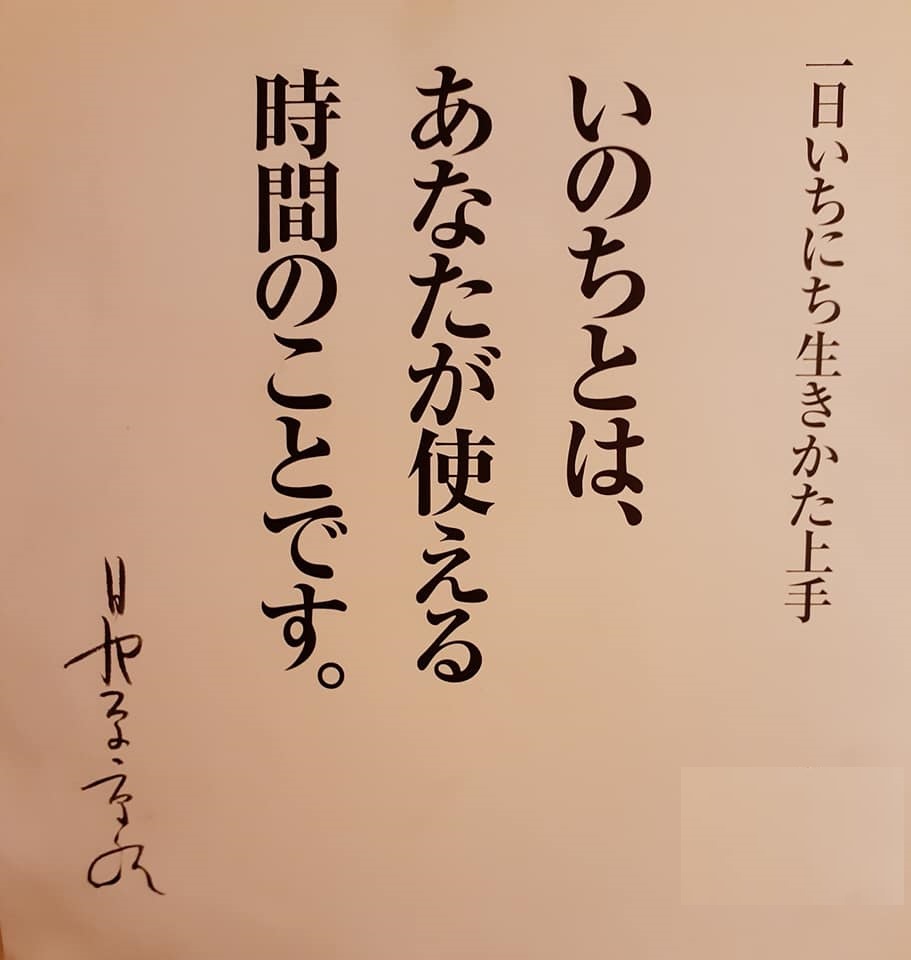 一日いちにち生きかた上手
いのちとは、
あなたが使える
時間のことです。
日野原重明